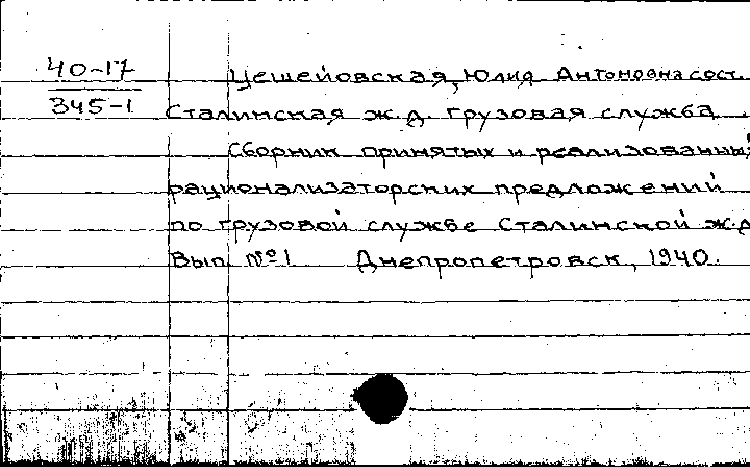 40-17
345-1
Цешейовская, Юлия Антоновна сост.
Сталинская ж.д. грузовая служба.
Сборник принятых и реализованных
рационализаторских предложений
по грузовой службе Сталинской ж.д
Вып. №1 Днепропетровск, 1940.